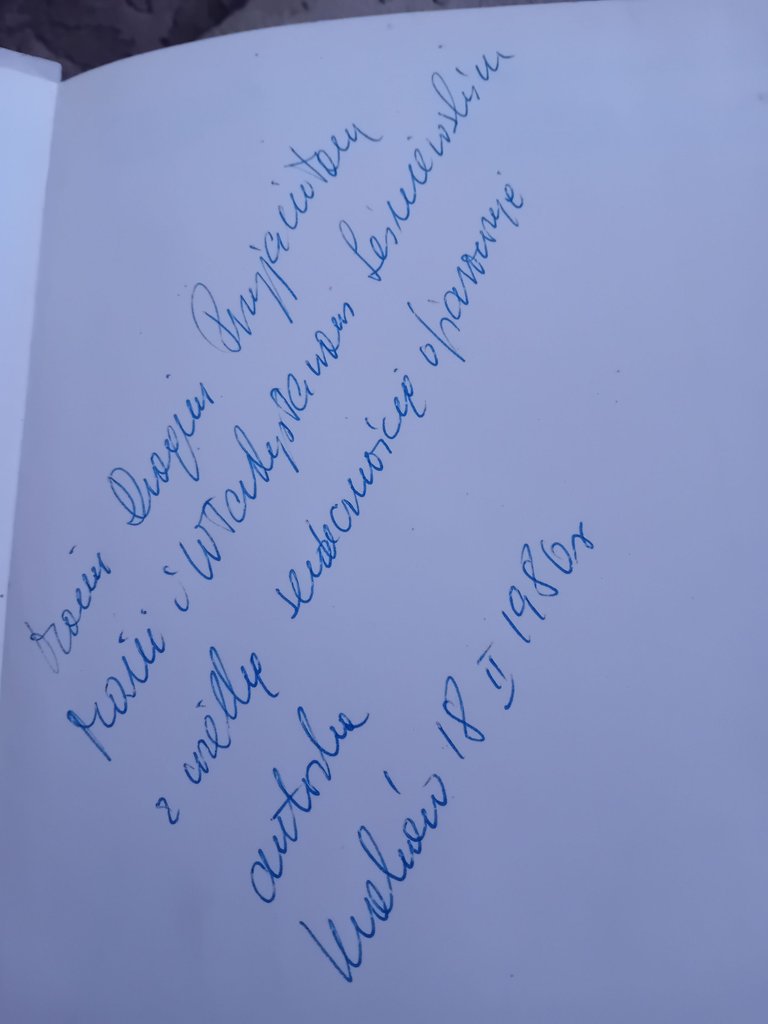 Moim Drogim Przyjaciołom
Marii i Władysławom Leśniewskim
z wielką serdecznością ofiarowuję
autorka
Kraków 18 II 1986r